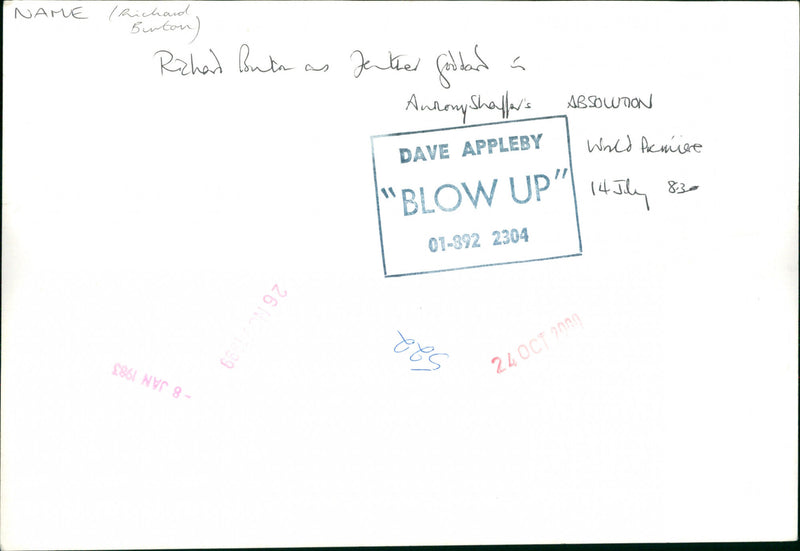 NAME (Richard
Burton)
Richard Burton as Father Goddard in
Anthony Shaffer's ABSOLUTION
World Premiere
14 July 8.30
DAVE APPLEBY
"BLOW UP"
01-892 2304
26 NOV 1989
522
24 OCT 2000
- 8 JAN 1983